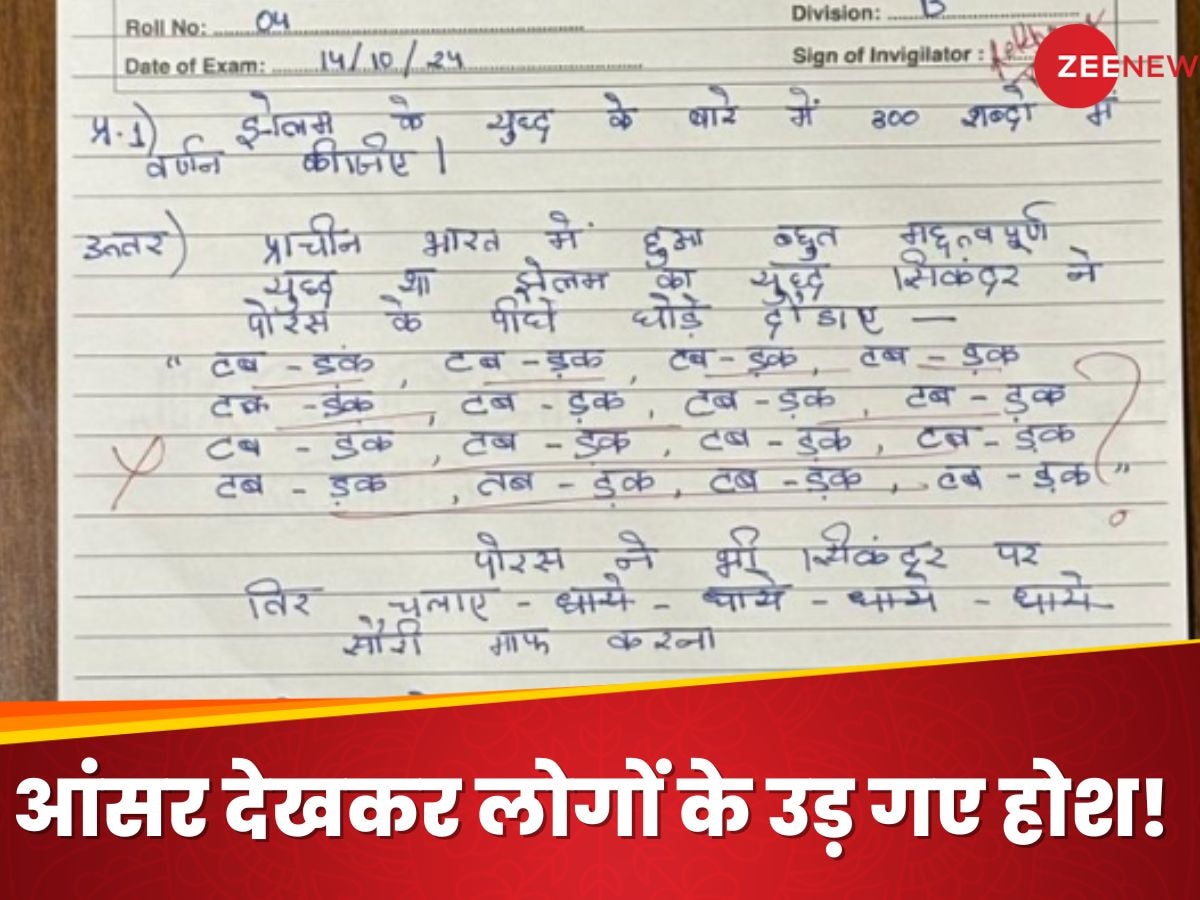 Roll No: 04
Division: B
Date of Exam: 14/10/24
Sign of Invigilator :
ZEENEWS
प्र.1) झेलम के युध्द के बारे में 300 शब्दो में
वर्णन कीजिए।
उत्तर) प्राचीन भारत में हुआ बहुत महत्वपूर्ण
युध्द था झेलम का युध्द सिकंदर ने
पोरस के पीछे घोड़े दौडाए —
“ टब - डंक , टब - ड़क , टब - ड़क , टब - ड़क
टक - डंक , टब - ड़क , टब - ड़क , टब - ड़क
टब - ड़क , टब - ड़क , टब - ड़क , टब - ड़क
टब - ड़क , तब - ड़क , टब - ड़क , टब - ड़क ”
?
पोरस ने भी सिकंदर पर
तिर चलाए - धाये - धाये - धाये - धाये
सौरी माफ करना
आंसर देखकर लोगों के उड़ गए होश!